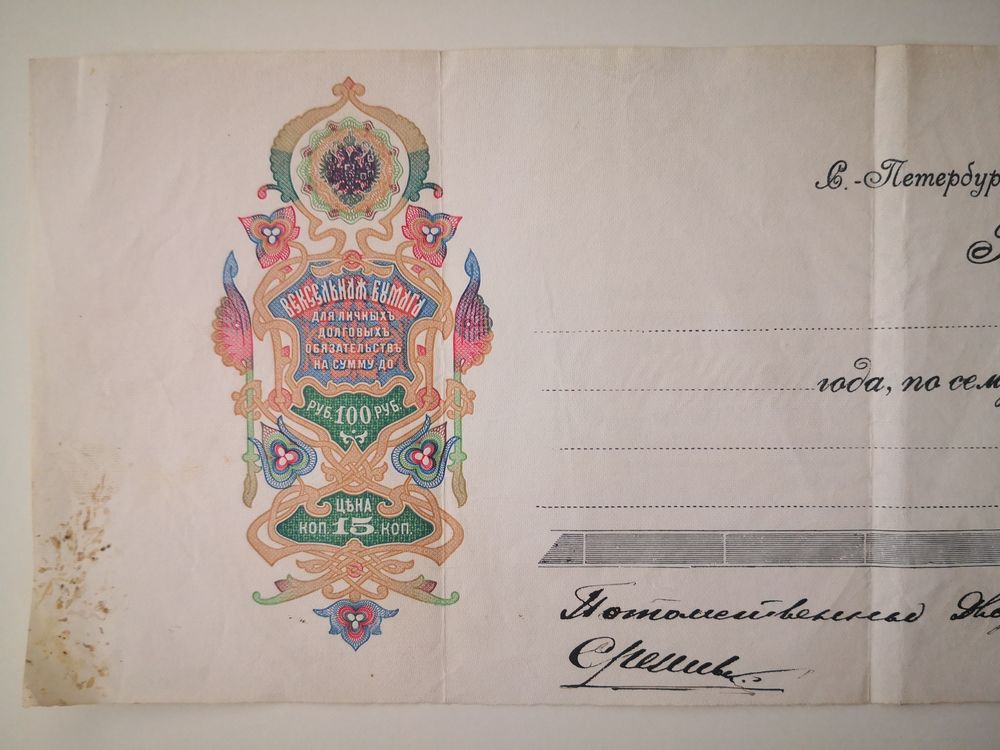 ВЕКСЕЛЬНАЯ БУМАГА
ДЛЯ ЛИЧНЫХЪ
ДОЛГОВЫХЪ
ОБЯЗАТЕЛЬСТВЪ
НА СУММУ ДО
РУБ. 100 РУБ.
ЦѢНА
КОП. 15 КОП.
С.-Петербур
года, по сем
Потомственный